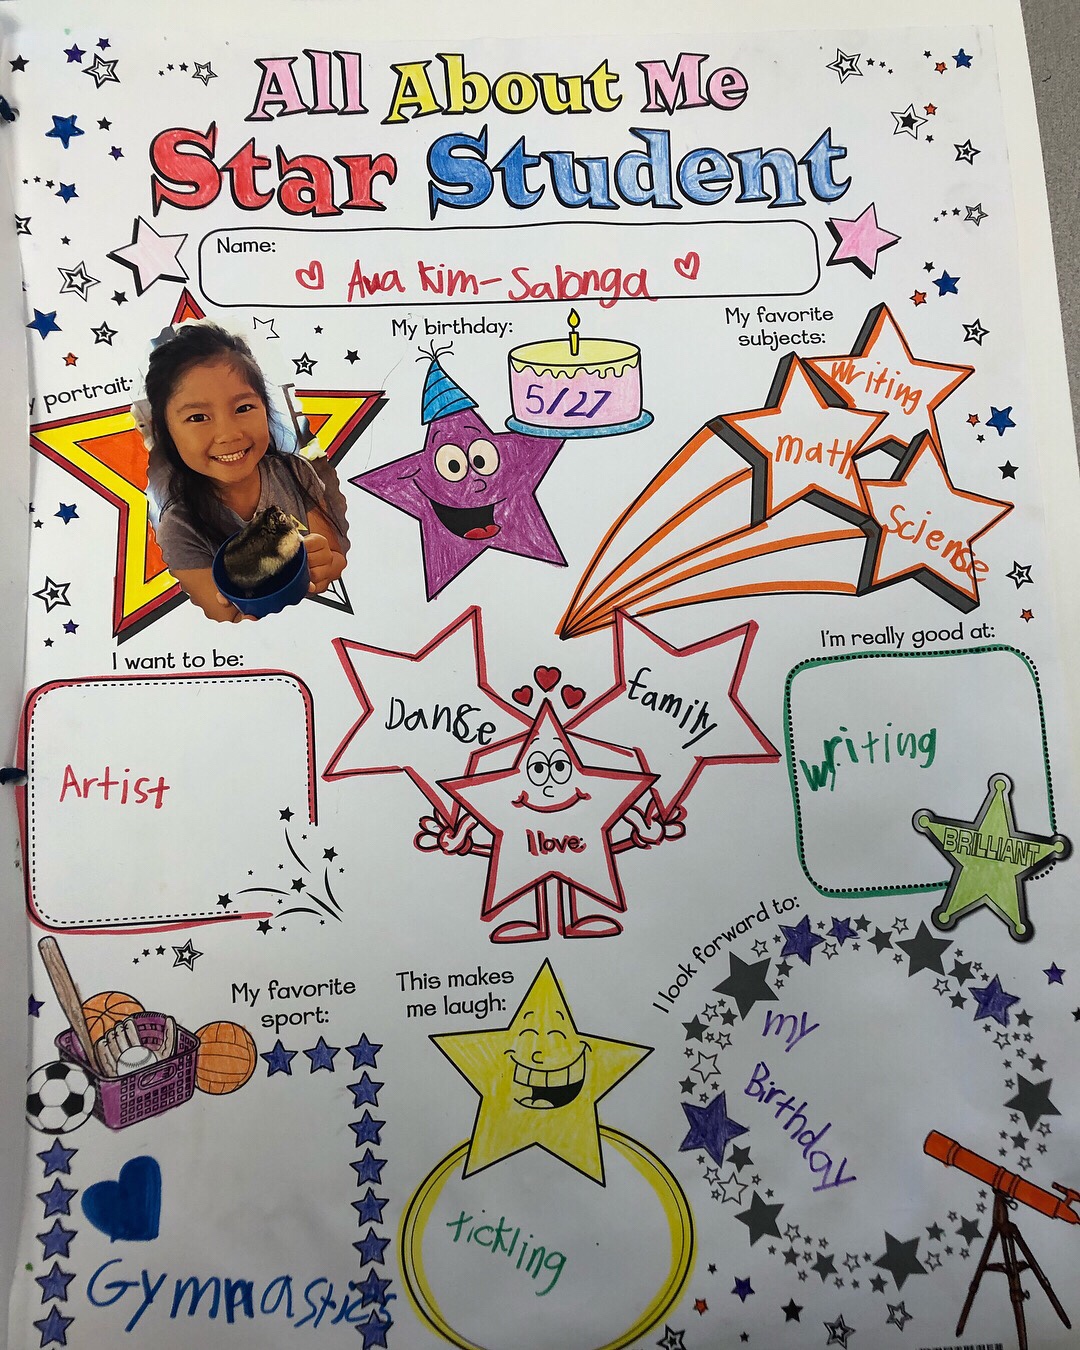 All About Me
Star Student
Name:
Ava Kim-Salonga
y portrait:
My birthday:
5/27
My favorite
subjects:
Writing
math
Sciense
I want to be:
Artist
Danse
family
I love:
I'm really good at:
writing
BRILLIANT
My favorite
sport:
Gymnastics
This makes
me laugh:
tickling
I look forward to:
my
Birthday